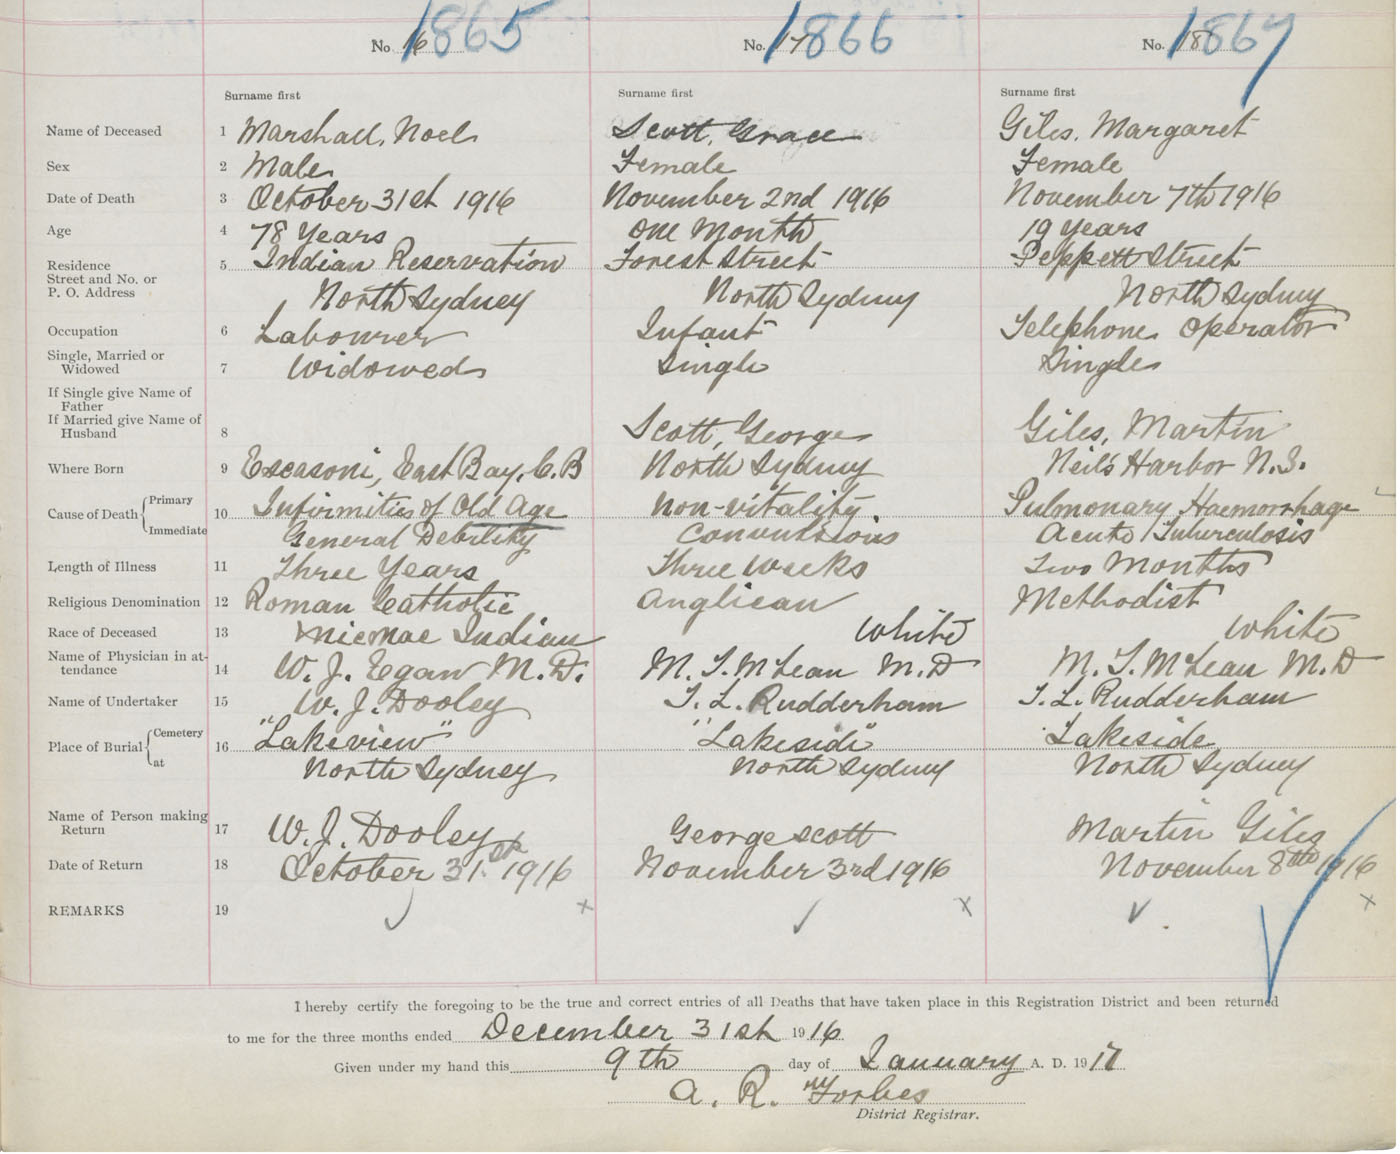 No. 16 1865 No. 17 1866 No. 18 1867
Surname first Surname first Surname first
Name of Deceased 1 Marshall, Noel Scott, Grace Giles, Margaret
Sex 2 Male Female Female
Date of Death 3 October 31st 1916 November 2nd 1916 November 7th 1916
Age 4 78 Years One Month 19 Years
Residence 5 Indian Reservation Forest Street Peppett Street
Street and No. or
P. O. Address North Sydney North Sydney North Sydney
Occupation 6 Labourer Infant Telephone Operator
Single, Married or
Widowed 7 Widowed Single Single
If Single give Name of
Father
If Married give Name of
Husband 8 Scott, George Giles, Martin
Where Born 9 Escasoni, East Bay, C.B North Sydney Neil's Harbor N.S.
Cause of Death Primary 10 Infirmities of Old Age Non-vitality. Pulmonary Haemorrhage
Immediate General Debility Convulsions Acute Tuberculosis
Length of Illness 11 Three Years Three weeks Two Months
Religious Denomination 12 Roman Catholic Anglican Methodist
Race of Deceased 13 Micmac Indian White White
Name of Physician in at-
tendance 14 W. J. Egan M.D. M. T. McLean M.D M. T. McLean M.D
Name of Undertaker 15 W. J. Dooley T. L. Rudderham T. L. Rudderham
Place of Burial Cemetery 16 "Lakeview" "Lakeside" Lakeside
at North Sydney North Sydney North Sydney
Name of Person making
Return 17 W. J. Dooley George Scott Martin Giles
Date of Return 18 October 31st 1916 November 3rd 1916 November 8th 1916
REMARKS 19
I hereby certify the foregoing to be the true and correct entries of all Deaths that have taken place in this Registration District and been returned
to me for the three months ended December 31st 1916
Given under my hand this 9th day of January A. D. 1917
A. R. Forbes
District Registrar.